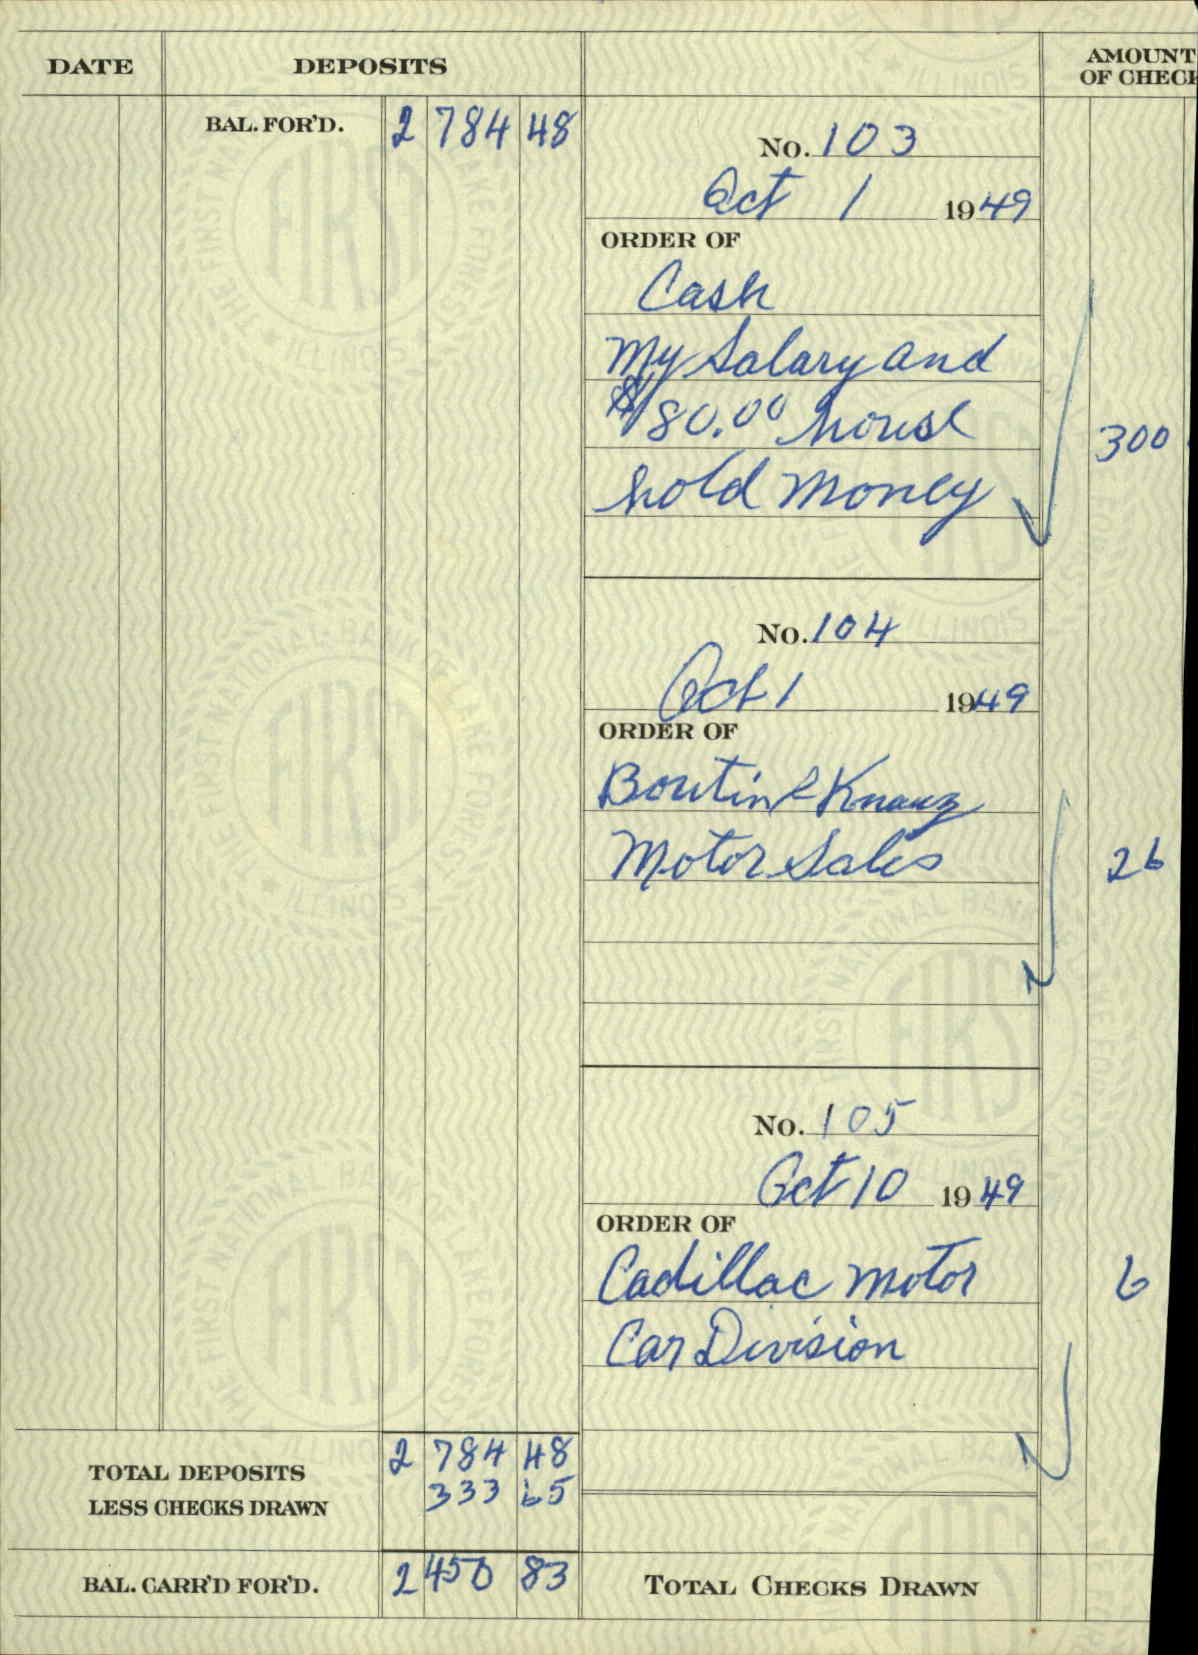 DATE DEPOSITS AMOUNT
OF CHECK
BAL. FOR'D. 2 784 48
No. 103
Oct 1 1949
ORDER OF
Cash
My Salary and
$180.00 house
hold money
300
No. 104
Oct 1 1949
ORDER OF
Boutin & Knauz
Motor Sales
26
No. 105
Oct 10 1949
ORDER OF
Cadillac Motor
Car Division
6
TOTAL DEPOSITS 2 784 48
LESS CHECKS DRAWN 333 65
BAL. CARR'D FOR'D. 2 450 83
TOTAL CHECKS DRAWN